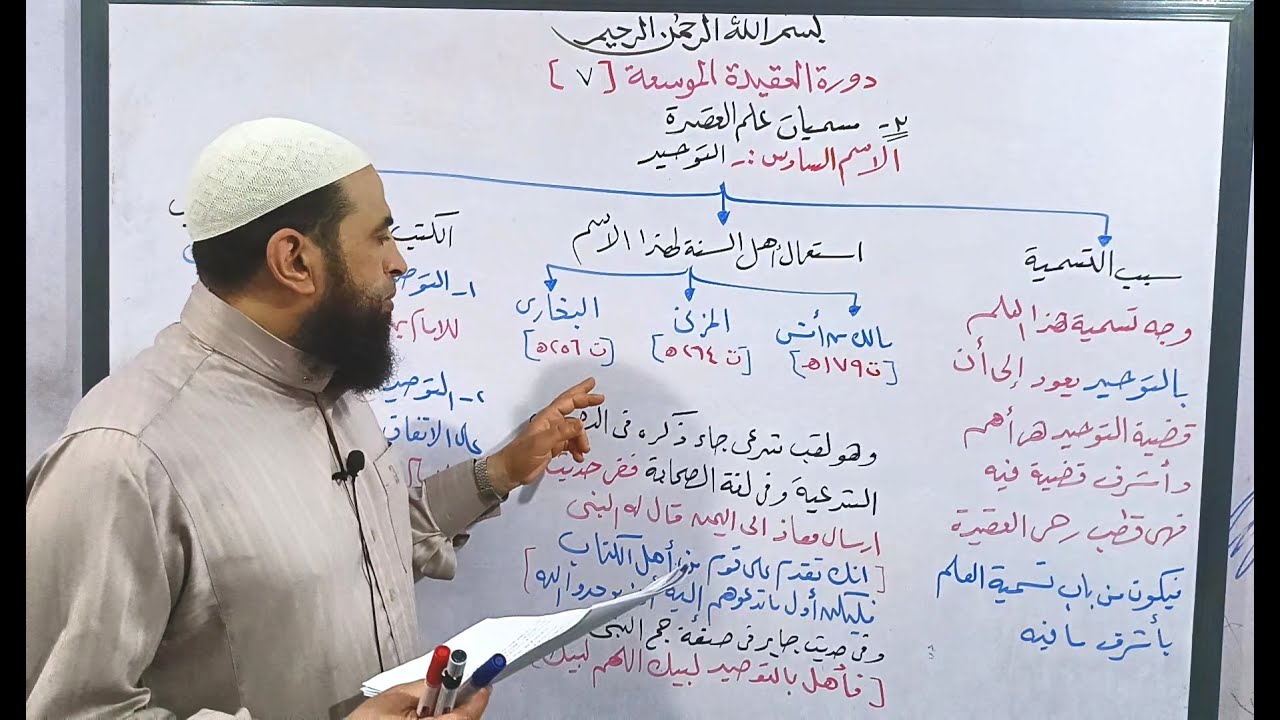 بسم الله الرحمن الرحيم
دورة العقيدة الموسعة [٧]
٢- مسميات علم العقيدة
الاسم السادس :- التوحيد
سبب التسمية
وجه تسمية هذا العلم
بالتوحيد يعود إلى أن
قضية التوحيد هى أهم
وأشرف قضية فيه
فهى قطب رحى العقيدة
فيكون من باب تسمية العلم
بأشرف ما فيه
استعمال أهل السنة لهذا الاسم
مالك بن أنس
[ت ١٧٩ه]
المزنى
[ت ٢٦٤ه]
البخارى
[ت ٢٥٦ه]
وهو لقب شرعى جاء ذكره فى
الشرعية وفى لغة الصحابة ففى حديث
ارسال معاذ الى اليمن قال له النبى
[انك تقدم على قوم من أهل الكتاب
فليكن أول ما تدعوهم إليه أن يوحدوا الله]
وفى حديث جابر فى صفة حج النبى
[فأهل بالتوحيد لبيك اللهم لبيك]
الكتب
١- التوحيد
للامام
٢- التوحيد
على الاتفاق